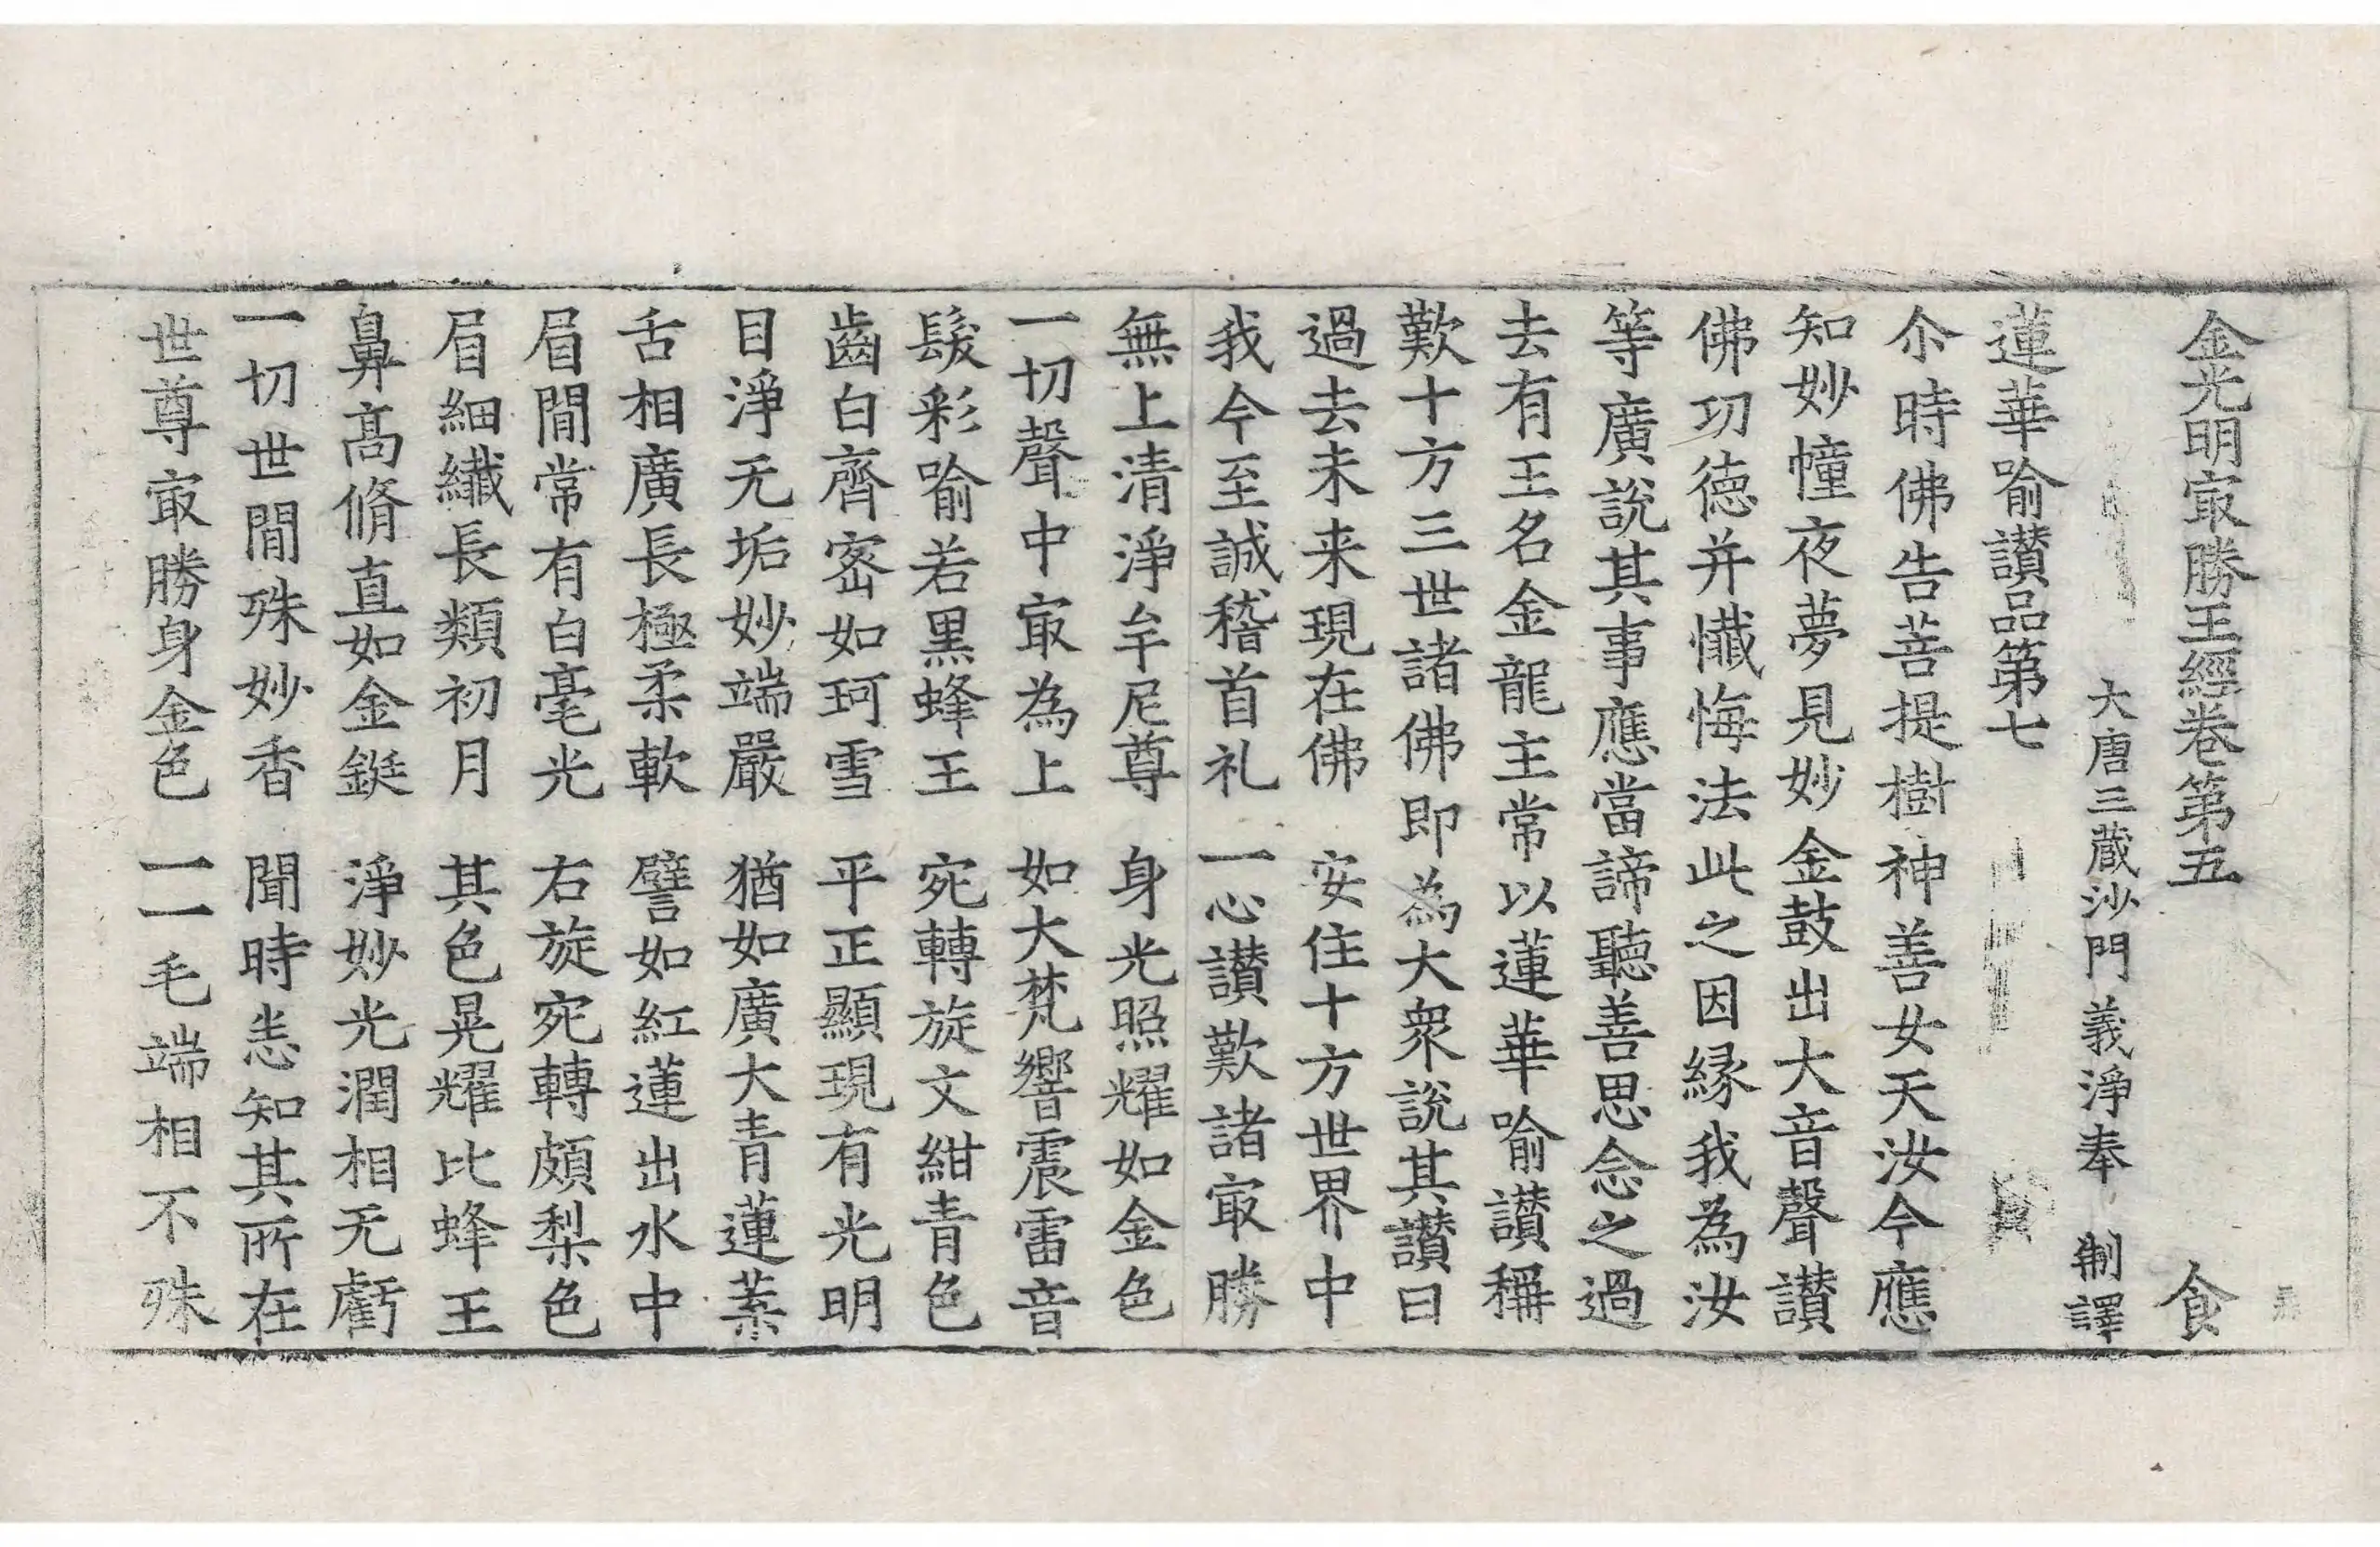 金光明㝡勝王經卷第五 食
大唐三蔵沙門義淨奉 制譯
蓮華喻讃品第七
尒時佛告菩提樹神善女天汝今應
知妙幢夜夢見妙金鼓出大音聲讃
佛㓛德并懺悔法此之因縁我為汝
等廣說其事應當諦聽善思念之過
去有王名金龍主常以蓮華喻讃稱
歎十方三世諸佛即為大衆說其讃曰
過去未来現在佛 安住十方世界中
我今至誠稽首礼 一心讃歎諸㝡勝
無上清淨牟尼尊 身光照耀如金色
一切聲中㝡為上 如大梵響震雷音
髮彩喻若黒蜂王 宛轉旋文紺青色
齒白齊宻如珂雪 平正顯現有光明
目淨无垢妙端嚴 猶如廣大青蓮葉
舌相廣長極柔軟 譬如紅蓮出水中
眉間常有白毫光 右旋宛轉頗梨色
眉細纎長類初月 其色晃耀比蜂王
鼻髙脩直如金鋌 淨妙光潤相无虧
一切世間殊妙香 聞時悉知其所在
世尊㝡勝身金色 一一毛端相不殊